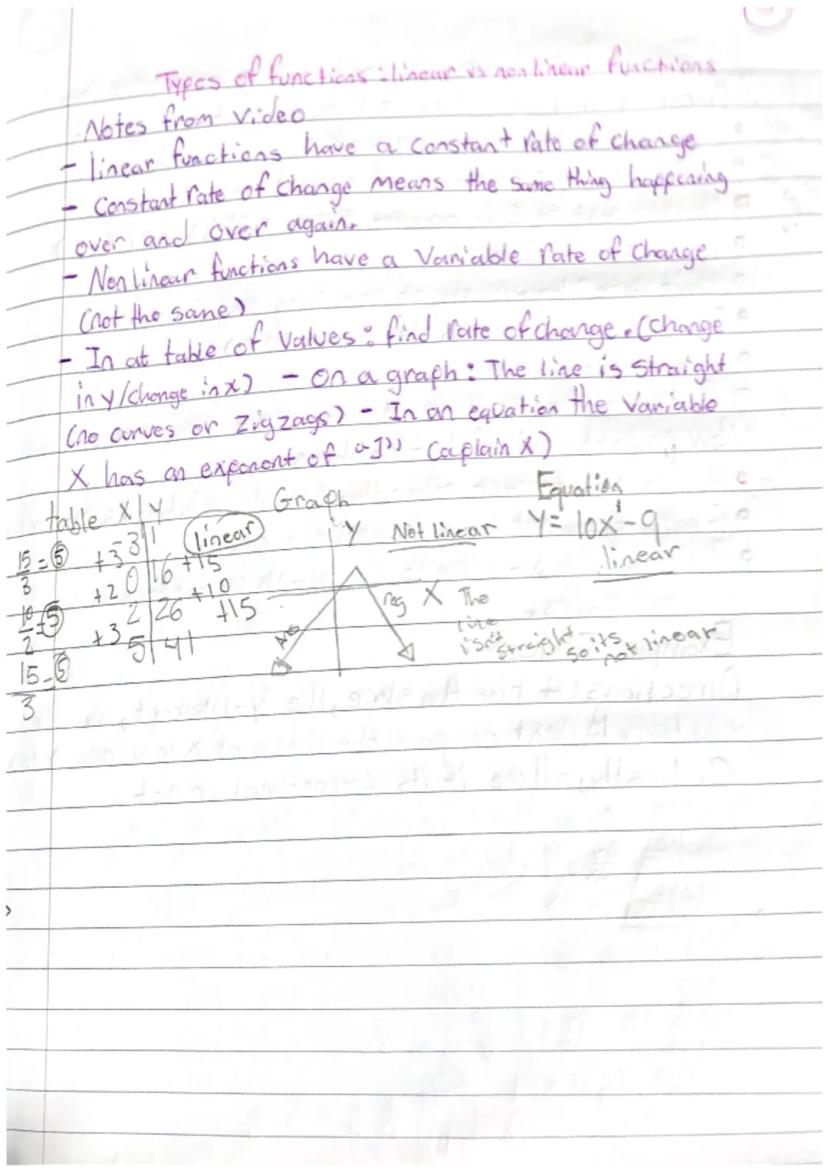 Types of functions : linear vs nonlinear functions
Notes from video
- linear functions have a constant rate of change
- Constant rate of change means the same thing happening
over and over again.
- Non linear functions have a Variable rate of change
(not the same)
- In at table of values : find rate of change. (change
in y/change in x) - On a graph : The line is Straight
(no curves or zigzags) - In an equation the variable
X has an exponent of "1" (captain X)
table X | Y
-3 | 1
0 | 16
2 | 26
5 | 41
+3
+2
+3
+15
+10
+15
15/3 = 5
10/2 = 5
15/3 = 5
linear
Graph
Y Not linear
X
neg
The
line
isn't straight so its not linear
Equation
Y = 10x¹ - 9
linear